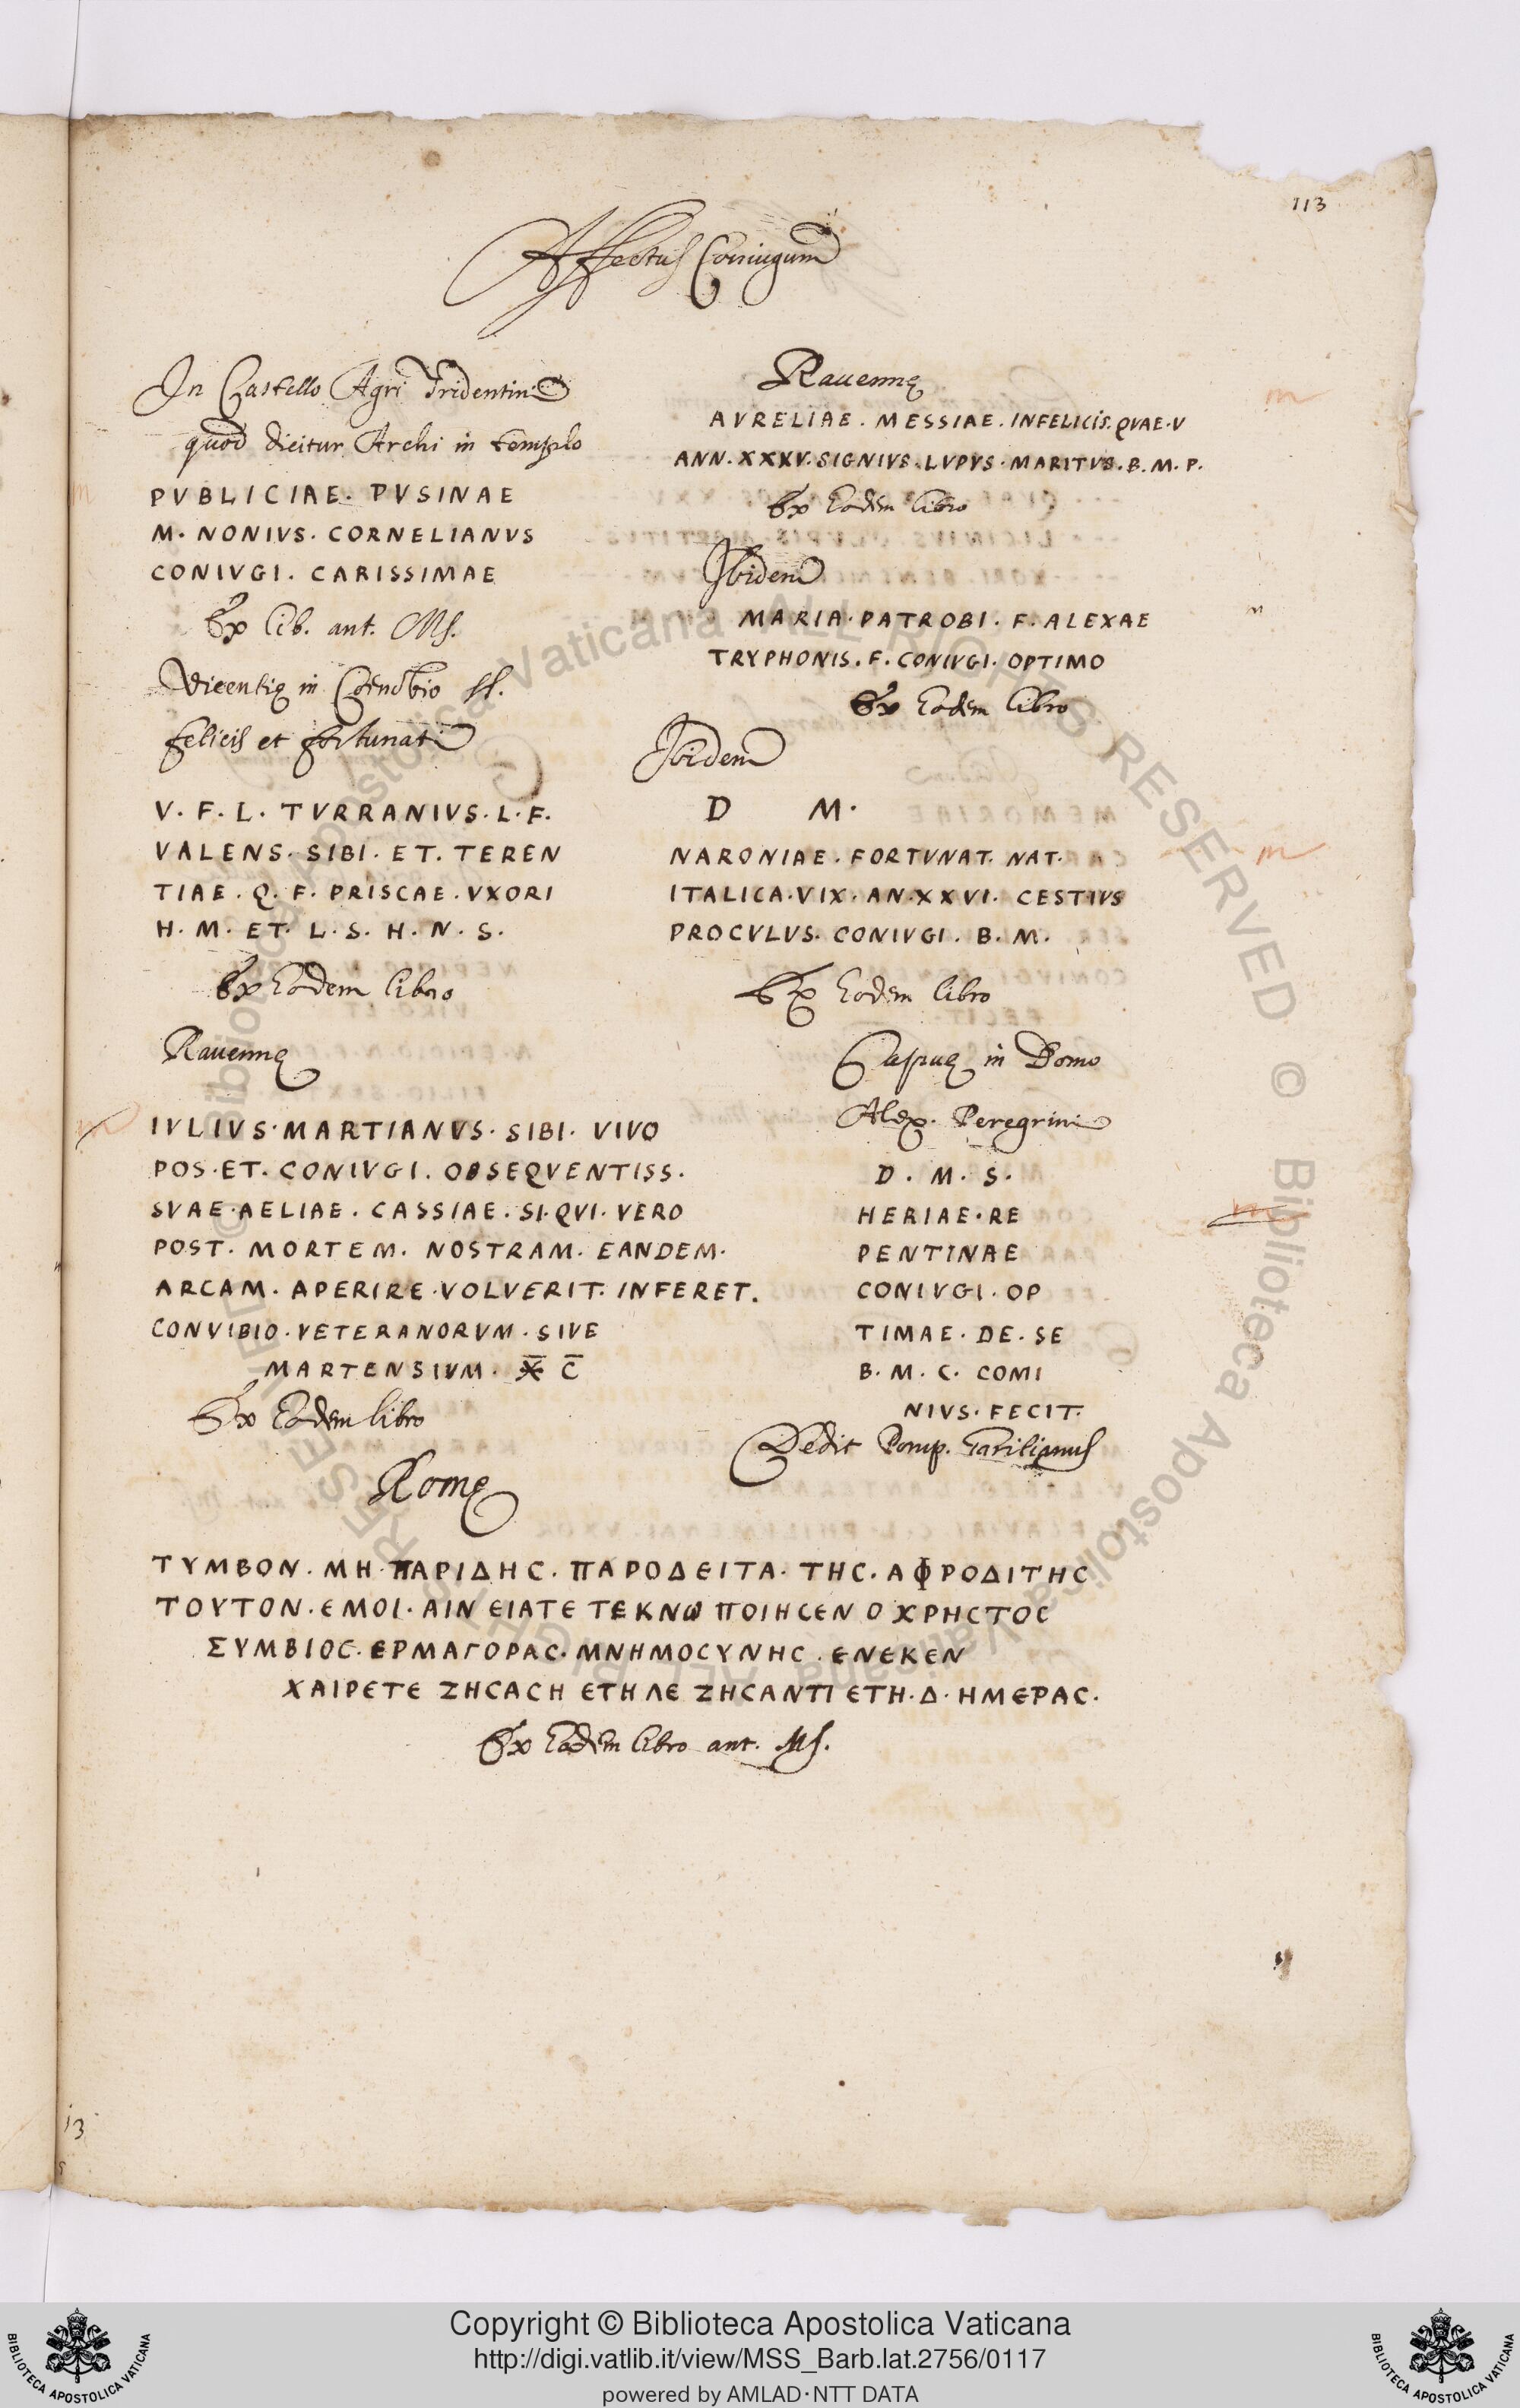 113
Affectus Coniugum
In Castello Agri Tridentini
quod dicitur Archi in templo
PVBLICIAE. PVSINAE
M. NONIVS. CORNELIANVS
CONIVGI. CARISSIMAE
Ex lib. ant. Ms.
Vicentię in Coenobio SS.
felicis et fortunati
V. F. L. TVRRANIVS. L. F.
VALENS. SIBI. ET. TEREN
TIAE. Q. F. PRISCAE. VXORI
H. M. ET. L. S. H. N. S.
Ex Eodem libro
Rauennę
IVLIVS. MARTIANVS. SIBI. VIVO
POS. ET. CONIVGI. OBSEQVENTISS.
SVAE. AELIAE. CASSIAE. SI. QVI. VERO
POST. MORTEM. NOSTRAM. EANDEM.
ARCAM. APERIRE. VOLVERIT. INFERET.
CONVIBIO. VETERANORVM. SIVE
MARTENSIVM. X̶̅ C̅
Ex Eodem libro
Rauennę
AVRELIAE. MESSIAE. INFELICIS. QVAE. V
ANN. XXXV. SIGNIVS. LVPVS. MARITVS. B. M. P.
Ex Eodem libro
Ibidem
MARIA. PATROBI. F. ALEXAE
TRYPHONIS. F. CONIVGI. OPTIMO
Ex Eodem libro
Ibidem
D M.
NARONIAE. FORTVNAT. NAT.
ITALICA. VIX. AN. XXVI. CESTIVS
PROCVLVS. CONIVGI. B. M.
Ex Eodem libro
Capuę in Domo
Alex. Peregrini
D. M. S.
HERIAE. RE
PENTINAE
CONIVGI. OP
TIMAE. DE. SE
B. M. C. COMI
NIVS. FECIT.
Dedit Pomp.
Romę
ΤΥΜΒΟΝ. ΜΗ. ΠΑΡΙΔΗϹ. ΠΑΡΟΔΕΙΤΑ. ΤΗϹ. ΑΦΡΟΔΙΤΗϹ
ΤΟΥΤΟΝ. ΕΜΟΙ. ΑΙΝ ΕΙΑΤΕ ΤΕΚΝω ΠΟΙΗϹΕΝ Ο ΧΡΗϹΤΟϹ
ΣΥΜΒΙΟϹ. ΕΡΜΑΓΟΡΑϹ. ΜΝΗΜΟϹΥΝΗϹ. ΕΝΕΚΕΝ
ΧΑΙΡΕΤΕ ΖΗϹΑϹΗ ΕΤΗ ΛΕ ΖΗϹΑΝΤΙ ΕΤΗ. Δ. ΗΜΕΡΑϹ.
Ex Eodem libro ant. Ms.
Copyright © Biblioteca Apostolica Vaticana
http://digi.vatlib.it/view/MSS_Barb.lat.2756/0117
powered by AMLAD·NTT DATA